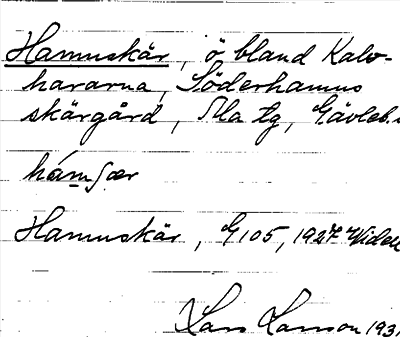 Hamnskär, ö bland Kalv-
hararna, Söderhamns
skärgård, Ma tg, Gävleb.
hámʃær
Hamnskär, G105, 1927
Lars Larsson 193